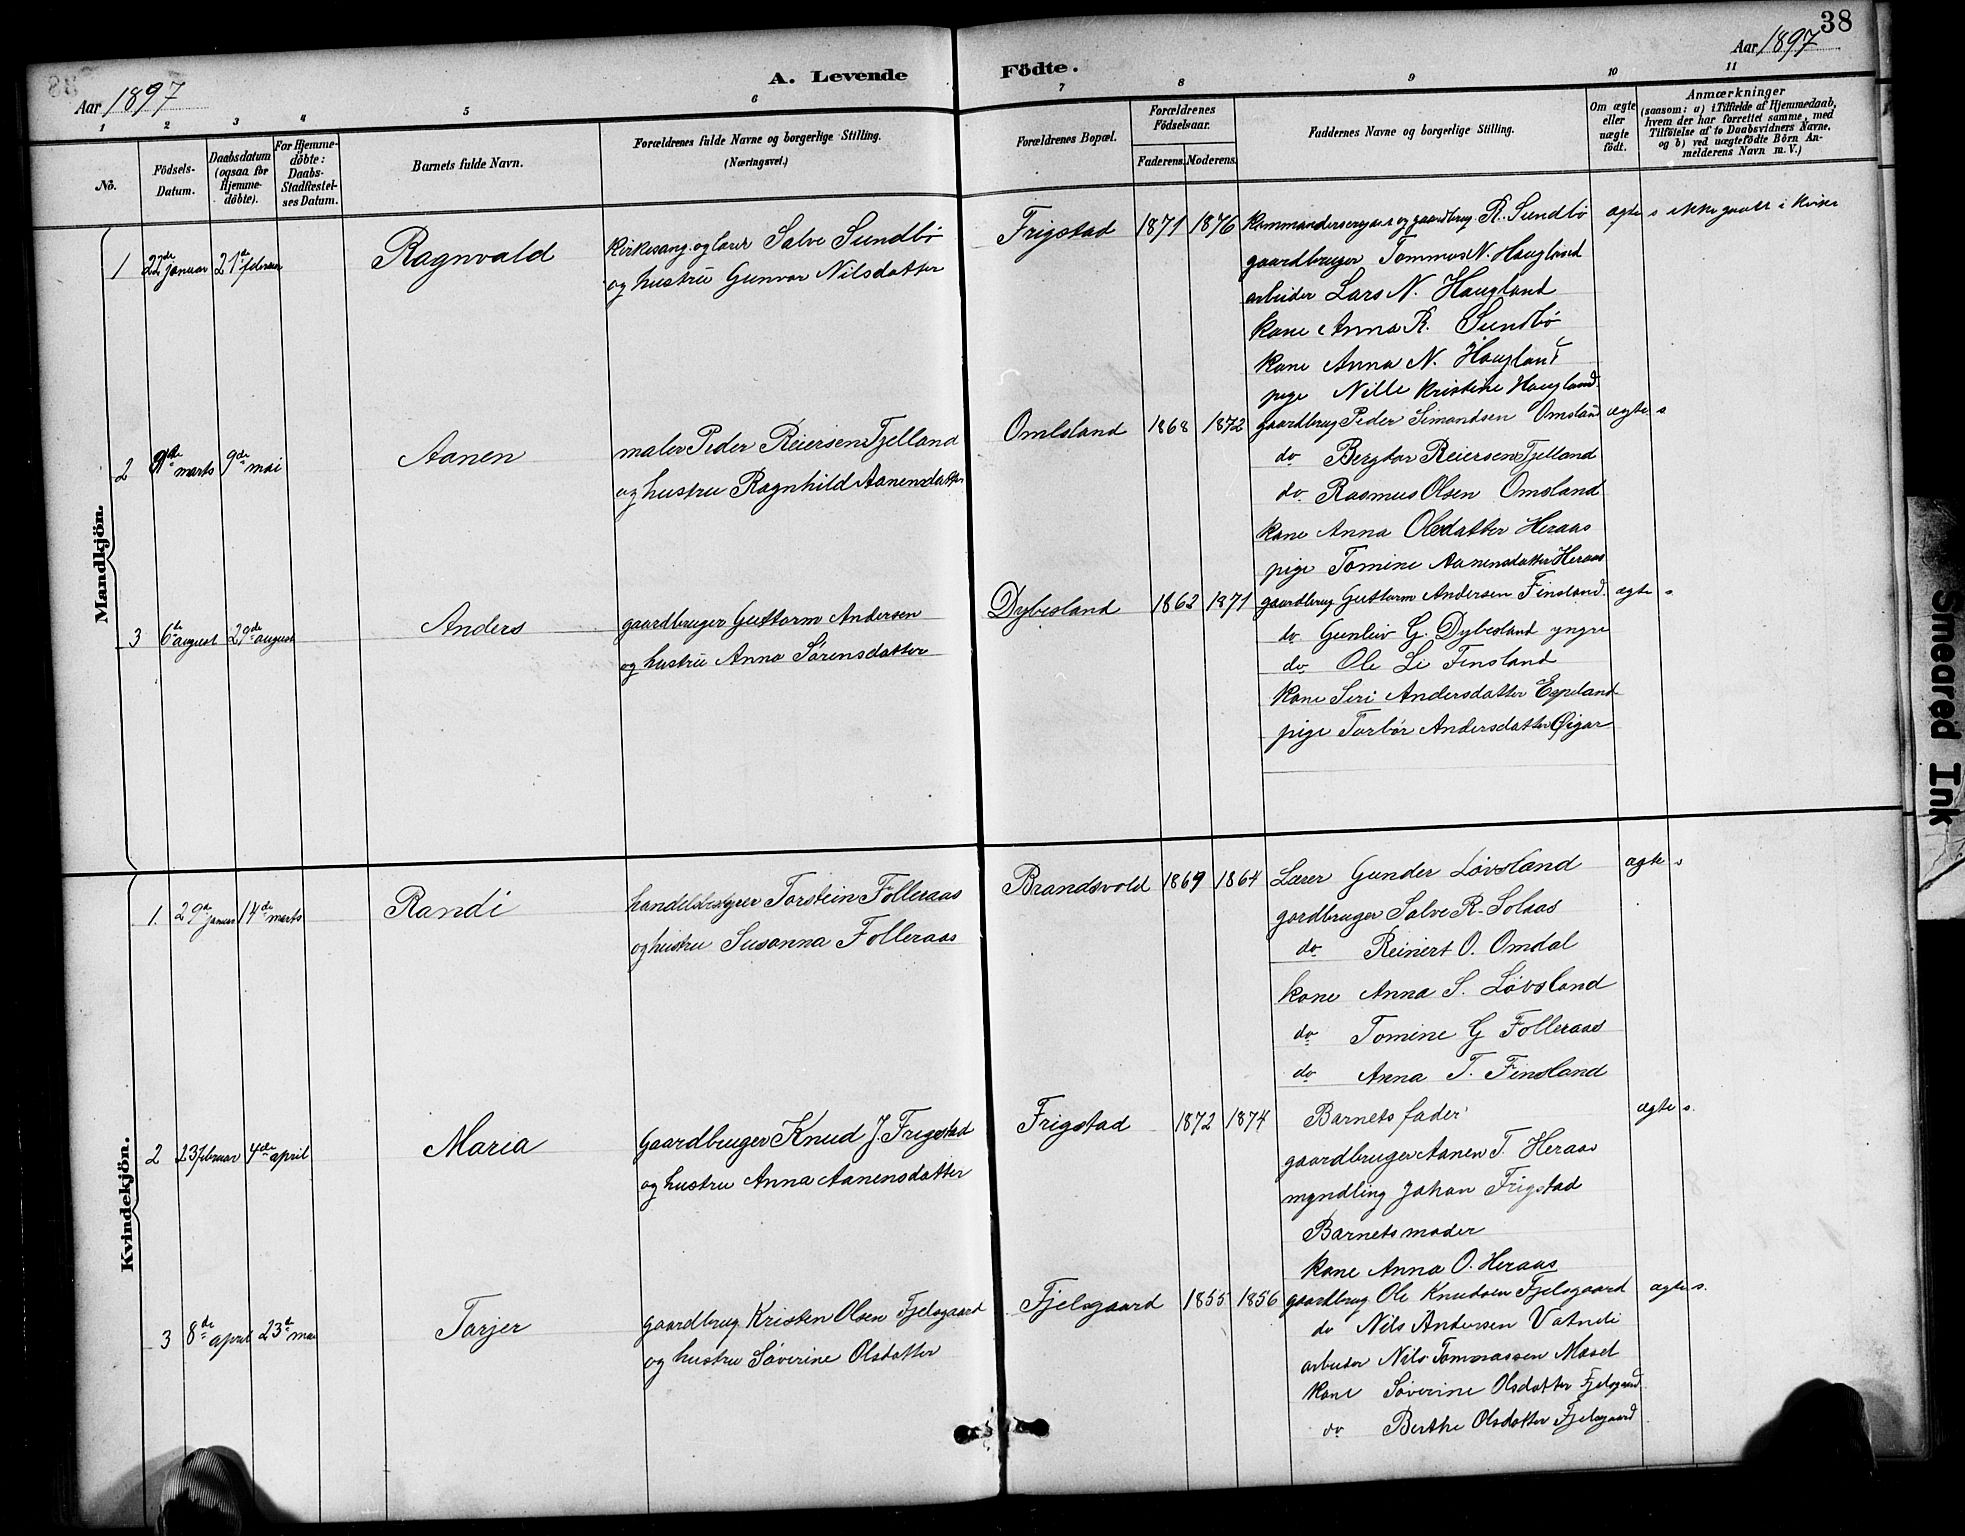 38
Aar 1897
A. Levende
Födte.
Aar 1897
1 2 3 4 5 6 7 8 9 10 11
No.
Födsels-
Datum.
Daabsdatum
(ogsaa for
Hjemme-
döbte).
For Hjemme-
döbte:
Daabs-
Stadfæstel-
ses Datum.
Barnets fulde Navn.
Forældrenes fulde Navne og borgerlige Stilling.
(Næringsvei.)
Forældrenes Bopæl.
Forældrenes
Födselsaar.
Faderens. Moderens.
Faddernes Navne og borgerlige Stilling.
Om ægte
eller
uægte
født.
Anmærkninger
(saasom: a) i Tilfælde af Hjemmedaab,
hvem der har forrettet samme, med
Tilföielse af to Daabsvidners Navne,
og b) ved uægtefödte Börn An-
melderens Navn m. V.)
Mandkjön.
1 22de januar 21de februar
Ragnvald
kirkesang. og lærer Salve Sundbø
og hustru Gunvor Nilsdatter
Frigstad 1871 1876
kommandersergeant og gaardbrug R. Sundbø
gaardbruger Tommas N. Haugland
arbeider Lars N. Haugland
kone Anna R. Sundbø
kone Anna N. Haugland
pige Nille Kristine Haugland
ægte s ikke gaatt i kvine
2 8de marts 9de mai
Aanen
maler Peder Reiersen Fjelland
og hustru Ragnhild Aanensdatter
Omlsland 1868 1872
gaardbrug Peder Simandsen Omsland
do Bergtor Reiersen Fjelland
do Rasmus Olsen Omsland
kone Anna Olsdatter Heraas
pige Tomine Aanensdatter Heraas
ægte s
3 6te august 29de august
Anders
gaardbruger Guttorm Andersen
og hustru Anna Sørensdatter
Dybesland 1862 1871
gaardbrug Guttorm Andersen Finsland
do Gunleiv G. Dybesland yngre
do Ole Li Finsland
kone Siri Andersdatter Espeland
pige Torbør Andersdatter Øigar
ægte s
Kvindekjön.
1. 29de januar 14de marts
Randi
handelsbestyrer Torstein Folleraas
og hustru Susanna Folleraas
Brandsvold 1869 1864
Lærer Gunder Løvsland
gardbruger Salve R. Solaas
do Reinert O. Omdal
kone Anna S. Løvsland
do Tomine G Folleraas
do Anna T. Finsland
ægte s
2 23 februar 4de april
Maria
Gaardbruger Knud J. Frigstad
og hustru Anna Aanensdatter
Frigstad 1872 1874
Barnets fader
gaardbruger Aanen T. Heraas
myndling Johan Frigstad
Barnets moder
kone Anna O. Heraas
ægte s.
3 8de april 23de mai
Tarjer
gaardbrug. Kristen Olsen Fjelsgaard
og hustru Søverine Olsdatter
Fjelsgaard 1855 1856
gaardbrug Ole Knudsen Fjelsgaard
do Nils Andersen Vatneli
arbeider Nils Tommassen Mæsel
kone Søverine Olsdatter Fjelsgaard
do Berthe Olsdatter Fjelsgaard
ægte s.
Smeared Ink